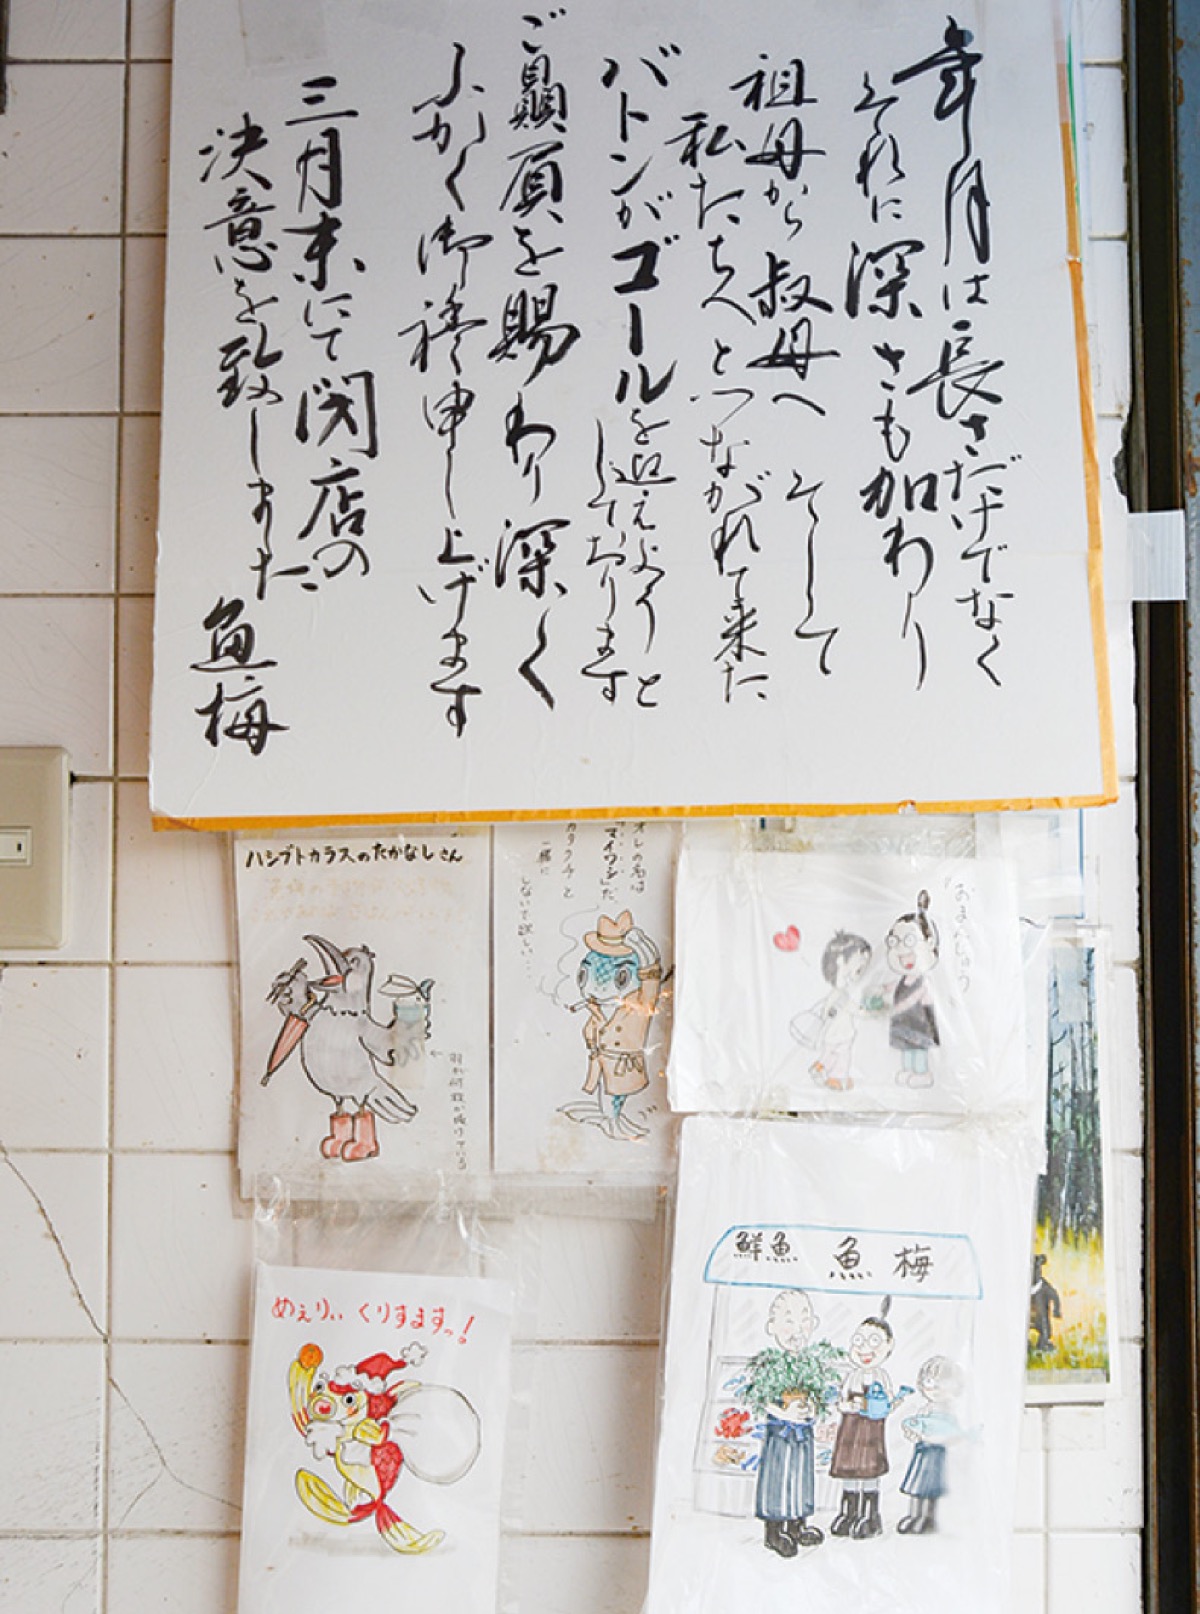 年月は長さだけでなく
それに深さも加わり
祖母から叔母へ そして
私たちへとつながれて来た
バトンがゴールを迎えようと
しております
ご贔屓を賜わり深く
ふかく御禮申し上げます
三月末にて閉店の
決意を致しました
魚梅
ハシブトカラスのたかなしさん
羽が何故か
オレの名は
マイワシだ。
カタクチと
一緒に
しないで欲しい…
おまんじゅう
めぇりぃ くりすますっ!
鮮魚 魚梅